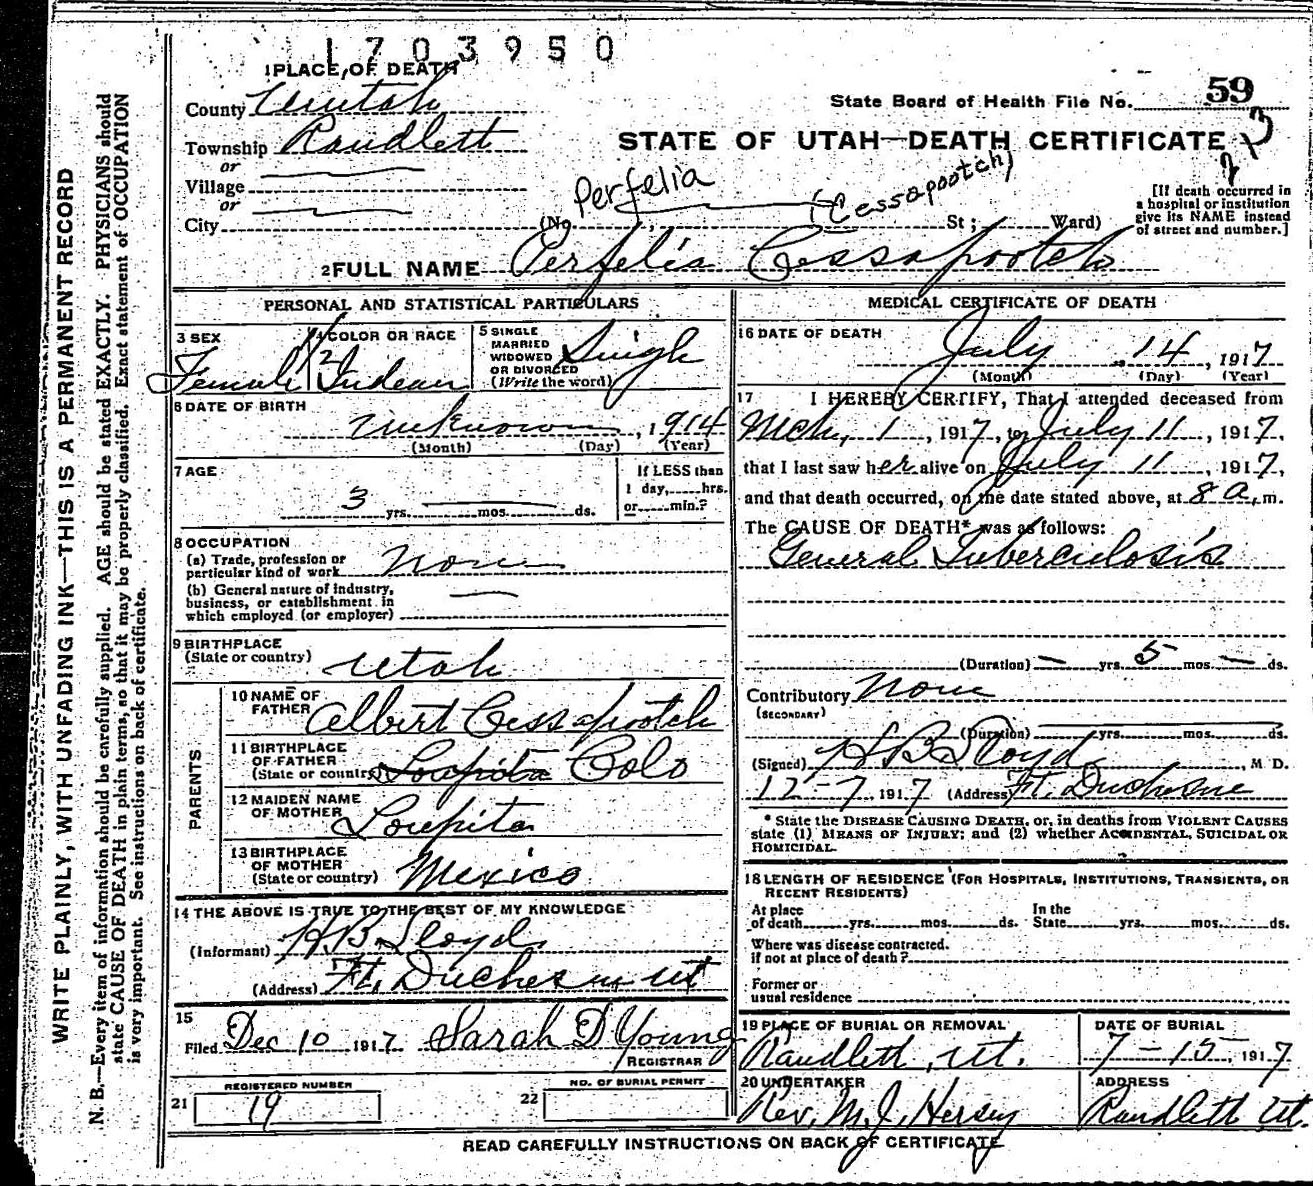 1703950
1 PLACE OF DEATH
County Uintah
State Board of Health File No. 59
Township Randlett
STATE OF UTAH—DEATH CERTIFICATE
or
Village
or
City
Perfelia (Cessapootch)
(No. St; Ward)
[If death occurred in
a hospital or institution
give its NAME instead
of street and number.]
2 FULL NAME Perfelia Cessapootch
PERSONAL AND STATISTICAL PARTICULARS
3 SEX
Female
4 COLOR OR RACE
Indian
5 SINGLE
MARRIED
WIDOWED
OR DIVORCED
(Write the word)
Single
6 DATE OF BIRTH
unknown, 1914
(Month) (Day) (Year)
7 AGE
3 yrs. mos. ds.
If LESS than
1 day, hrs.
or min.?
8 OCCUPATION
(a) Trade, profession or
particular kind of work None
(b) General nature of industry,
business, or establishment in
which employed (or employer)
9 BIRTHPLACE
(State or country) Utah
PARENTS
10 NAME OF
FATHER Albert Cessapootch
11 BIRTHPLACE
OF FATHER
(State or country) Loupita Colo
12 MAIDEN NAME
OF MOTHER Loupita
13 BIRTHPLACE
OF MOTHER
(State or country) Mexico
14 THE ABOVE IS TRUE TO THE BEST OF MY KNOWLEDGE
(Informant) H.B. Lloyd
(Address) Ft. Duchesne Ut
15
Filed Dec 10 1917 Sarah D Young
REGISTRAR
REGISTERED NUMBER
21 19
NO. OF BURIAL PERMIT
22
MEDICAL CERTIFICATE OF DEATH
16 DATE OF DEATH
July 14, 1917
(Month) (Day) (Year)
17 I HEREBY CERTIFY, That I attended deceased from
Mch, 1, 1917, to July 11, 1917,
that I last saw her alive on July 11, 1917,
and that death occurred, on the date stated above, at 8 a, m.
The CAUSE OF DEATH* was as follows:
General Tuberculosis
(Duration) — yrs. 5 mos. — ds.
Contributory None
(SECONDARY)
(Duration) yrs. mos. ds.
(Signed) H B Lloyd, M D.
12-7, 1917 (Address) Ft. Duchesne
* State the DISEASE CAUSING DEATH, or, in deaths from VIOLENT CAUSES
state (1) MEANS OF INJURY; and (2) whether ACCIDENTAL, SUICIDAL OR
HOMICIDAL.
18 LENGTH OF RESIDENCE (FOR HOSPITALS, INSTITUTIONS, TRANSIENTS, OR
RECENT RESIDENTS)
At place
of death yrs. mos. ds.
In the
State yrs. mos. ds.
Where was disease contracted.
if not at place of death?
Former or
usual residence
19 PLACE OF BURIAL OR REMOVAL
Randlett, Ut.
DATE OF BURIAL
7-15, 1917
20 UNDERTAKER
Rev. M.J. Hersey
ADDRESS
Randlett Ut.
READ CAREFULLY INSTRUCTIONS ON BACK OF CERTIFICATE
WRITE PLAINLY, WITH UNFADING INK—THIS IS A PERMANENT RECORD
N. B.—Every item of information should be carefully supplied. AGE should be stated EXACTLY. PHYSICIANS should
state CAUSE OF DEATH in plain terms, so that it may be properly classified. Exact statement of OCCUPATION
is very important. See instructions on back of certificate.